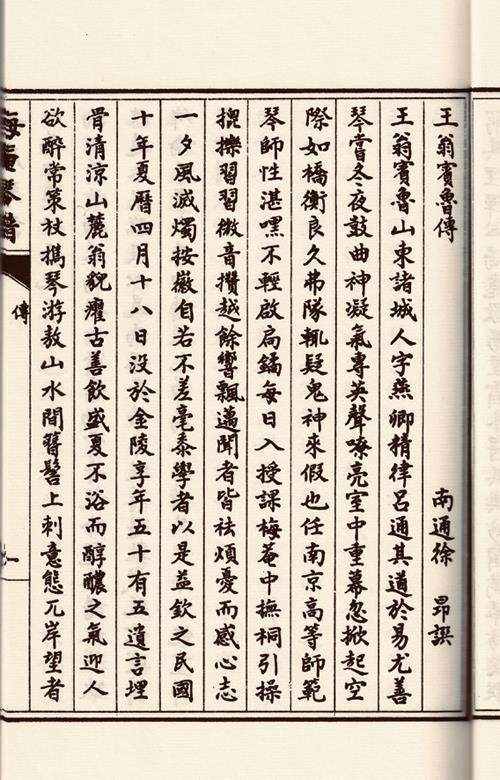 王翁賓魯傳
南通徐　昂譔
王翁賓魯山東諸城人字燕卿精律呂通其道於易尤善
琴嘗冬夜鼓曲神凝氣專英聲嘹亮室中重幕忽掀起空
際如橋衡良久弗隊輒疑鬼神來假也任南京高等師範
琴師性湛嘿不輕啟扃鐍每日入授課梅菴中撫桐引操
捉擽習習微音攢越餘響飄邁聞者皆祛煩憂而感心志
一夕風滅燭按徽自若不差毫黍學者以是益欽之民國
十年夏曆四月十八日没於金陵享年五十有五遺言埋
骨清涼山麓翁貌癯古善飲盛夏不浴而醇醲之氣迎人
欲醉常策杖攜琴游敖山水間簪髻上刺意態兀岸望者
梅菴琴譜
傳
一